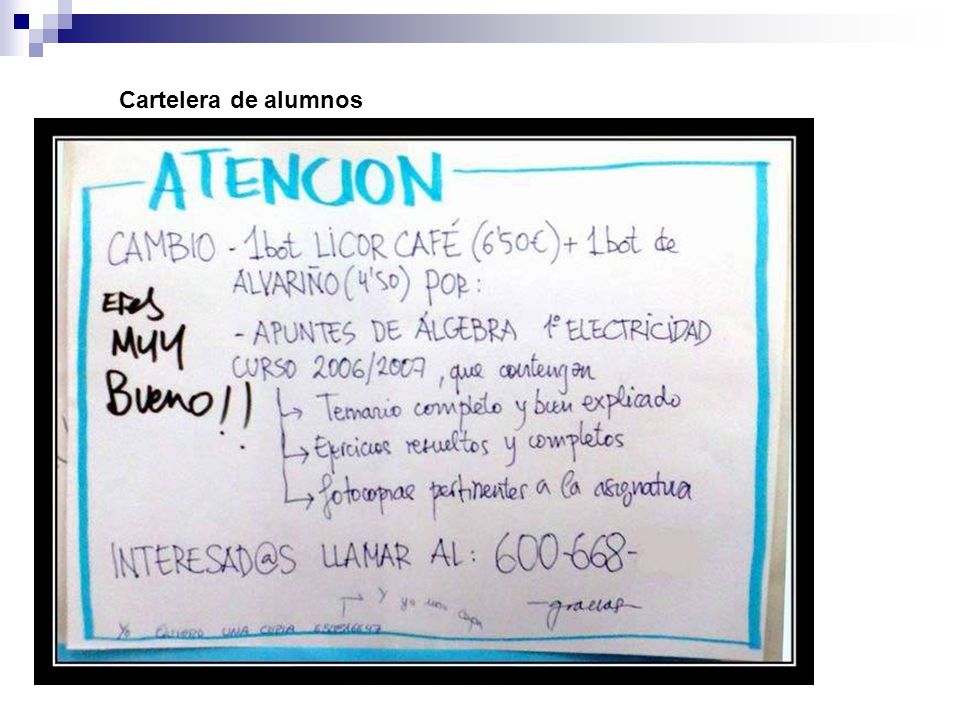 Cartelera de alumnos
ATENCION
CAMBIO - 1bot LICOR CAFÉ (6'50€) + 1bot de
ALVARIÑO (4'50) POR:
EReS
MUY
BUeNO!!
- APUNTES DE ÁLGEBRA 1º ELECTRICIDAD
CURSO 2006/2007, que contengan
Temario completo y bien explicado
Ejercicios resueltos y completos
fotocopias pertinentes a la asignatura
INTERESAD@S LLAMAR AL: 600-668-
y yo una copia
gracias
Yo QUIERO UNA COPIA